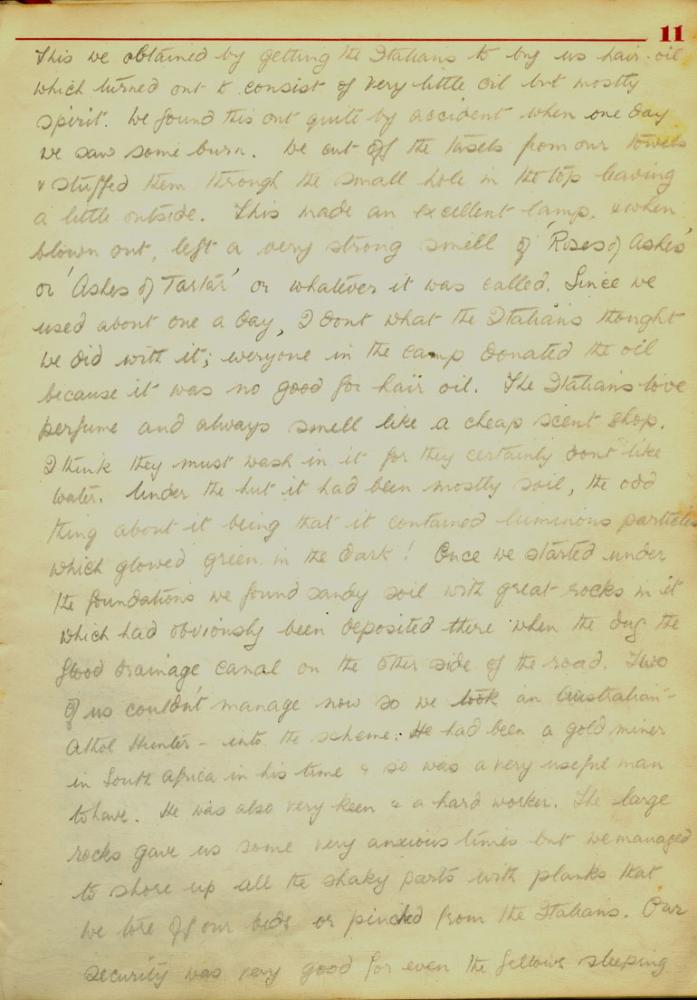 11
This we obtained by getting the Italians to buy us hair-oil
which turned out to consist of very little oil but mostly
spirit. We found this out quite by accident when one day
we saw some burn. We cut off the tassels from our towels
& stuffed them through the small hole in the top leaving
a little outside. This made an excellent lamp, & when
blown out, left a very strong smell of 'Roses of Ashes'
or 'Ashes of Tartar' or whatever it was called. Since we
used about one a day, I dont what the Italians thought
we did with it; everyone in the camp donated the oil
because it was no good for hair oil. The Italians love
perfume and always smell like a cheap scent shop.
I think they must wash in it for they certainly dont like
water. Under the hut it had been mostly soil, the odd
thing about it being that it contained luminous particles
which glowed green in the dark! Once we started under
the foundations we found sandy soil with great rocks in it
which had obviously been deposited there when the dug the
flood drainage canal on the other side of the road. Two
of us couldn't manage now so we took an Australian -
Athol Hunter - into the scheme. He had been a gold miner
in South Africa in his time & so was a very useful man
to have. He was also very keen & a hard worker. The large
rocks gave us some very anxious times but we managed
to shore up all the shaky parts with planks that
we tore off our beds or pinched from the Italians. Our
security was very good for even the fellows sleeping